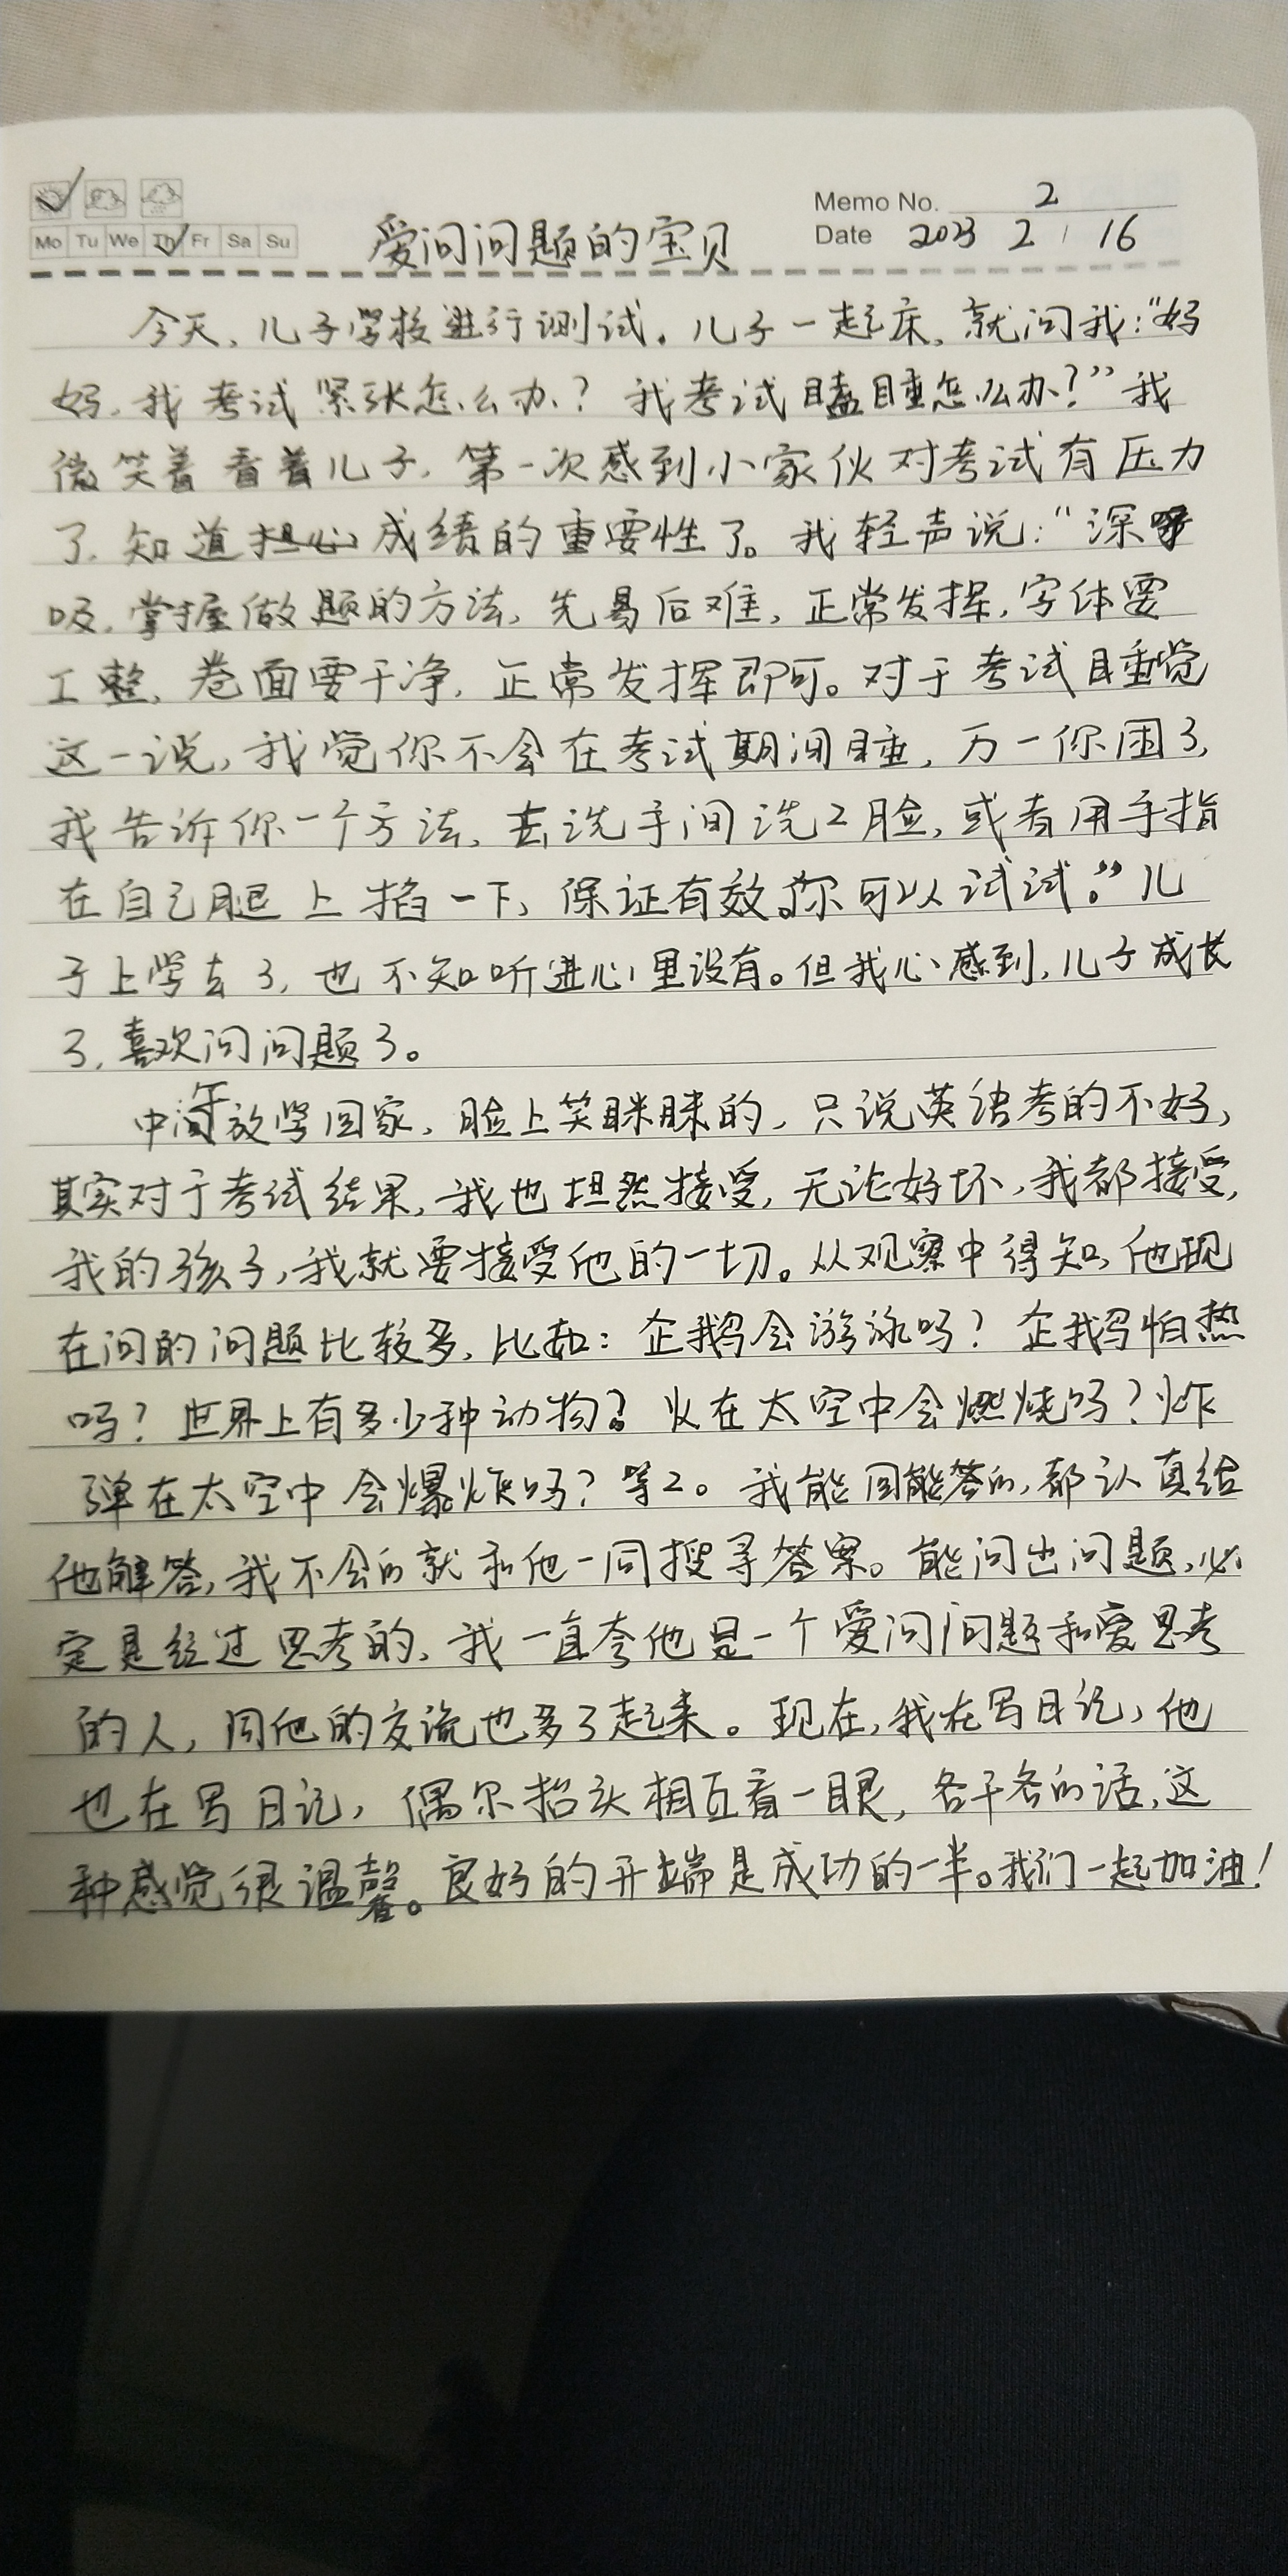 Memo No. 2
Mo Tu We Th Fr Sa Su
Date 2023 2 / 16
爱问问题的宝贝
今天,儿子学校进行测试。儿子一起床,就问我:“妈
妈,我考试紧张怎么办?我考试瞌睡怎么办?”我
微笑着看着儿子,第一次感到小家伙对考试有压力
了,知道担心成绩的重要性了。我轻声说:“深呼
吸,掌握做题的方法,先易后难,正常发挥,字体要
工整,卷面要干净,正常发挥即可。对于考试睡觉
这一说,我觉你不会在考试期间睡,万一你困了,
我告诉你一个方法,去洗手间洗2脸,或者用手指
在自己腿上掐一下,保证有效。你可以试试。”儿
子上学去了,也不知听进心里没有。但我心感到,儿子成长
了,喜欢问问题了。
中午放学回家,脸上笑眯眯的,只说英语考的不好,
其实对于考试结果,我也坦然接受,无论好坏,我都接受,
我的孩子,我就要接受他的一切。从观察中得知,他现
在问的问题比较多,比如:企鹅会游泳吗?企鹅怕热
吗?世界上有多少种动物?火在太空中会燃烧吗?炸
弹在太空中会爆炸吗?等2。我能回能答的,都认真给
他解答,我不会的就和他一同搜寻答案。能问出问题,必
定是经过思考的,我一直夸他是一个爱问问题和爱思考
的人,同他的交流也多了起来。现在,我在写日记,他
也在写日记,偶尔抬头相互看一眼,各干各的活,这
种感觉很温馨。良好的开端是成功的一半。我们一起加油!